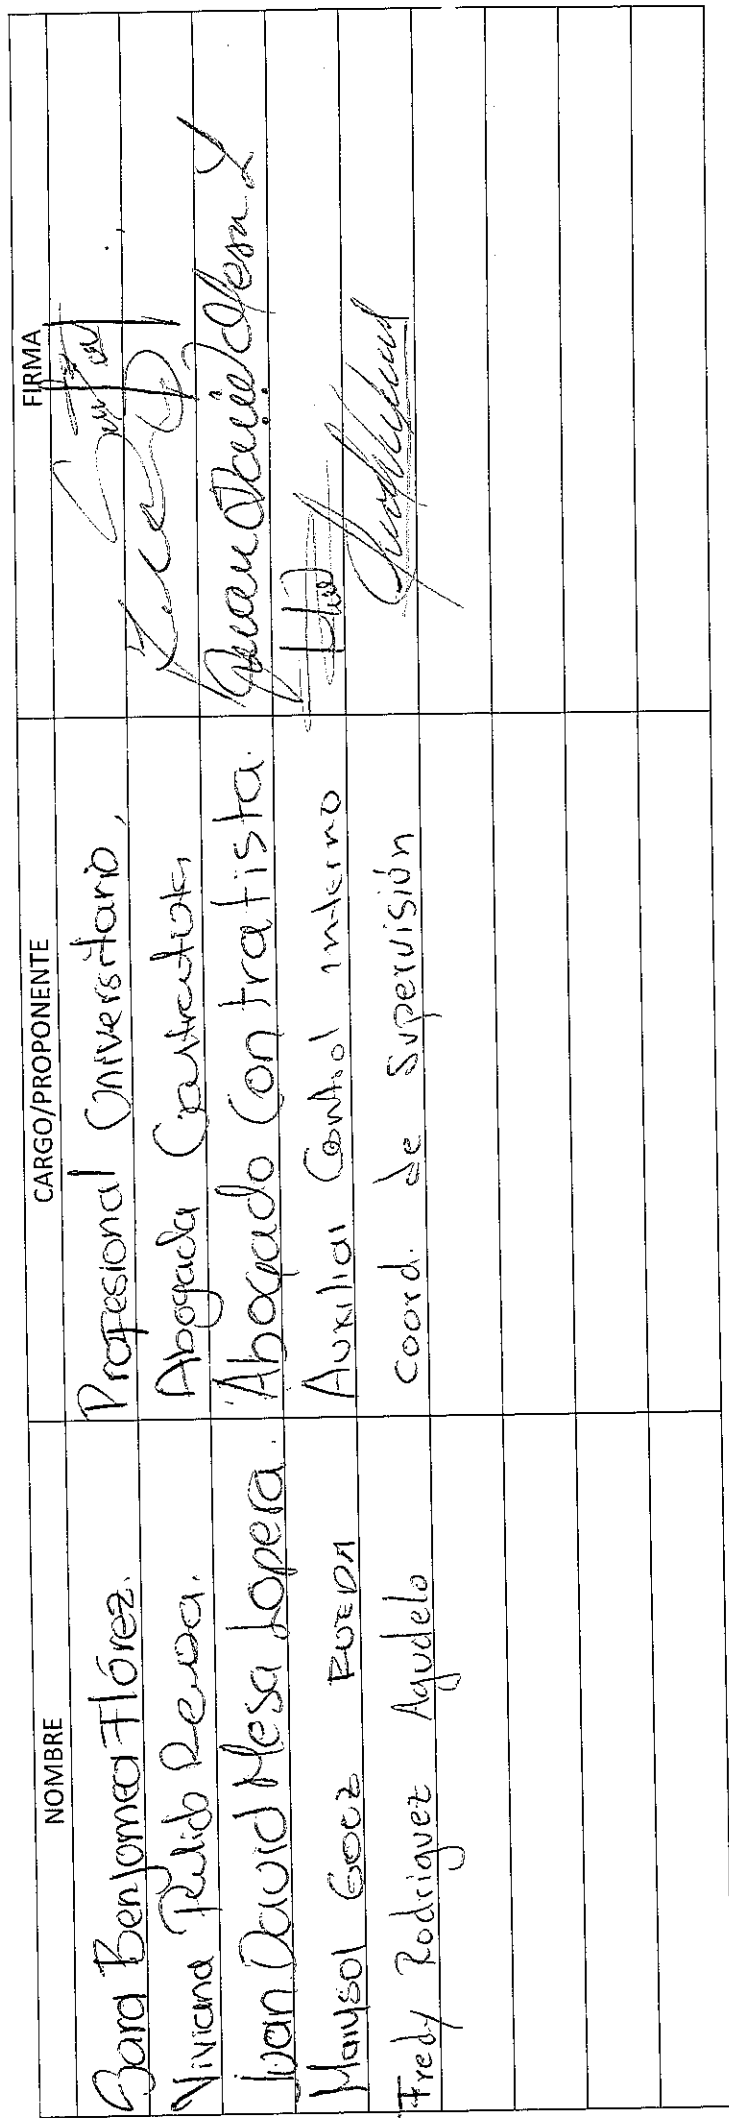 NOMBRE CARGO/PROPONENTE FIRMA
Sara Benjumea Flórez. Profesional Universitario,
Viviana Pulido Abogada Contratista
Juan David Mesa Lopera. Abogado Contratista. Juan David Mesa L
Marysol Goez RUEDA Auxilial Control interno
Fredy Rodriguez Agudelo coord. de Supervisión